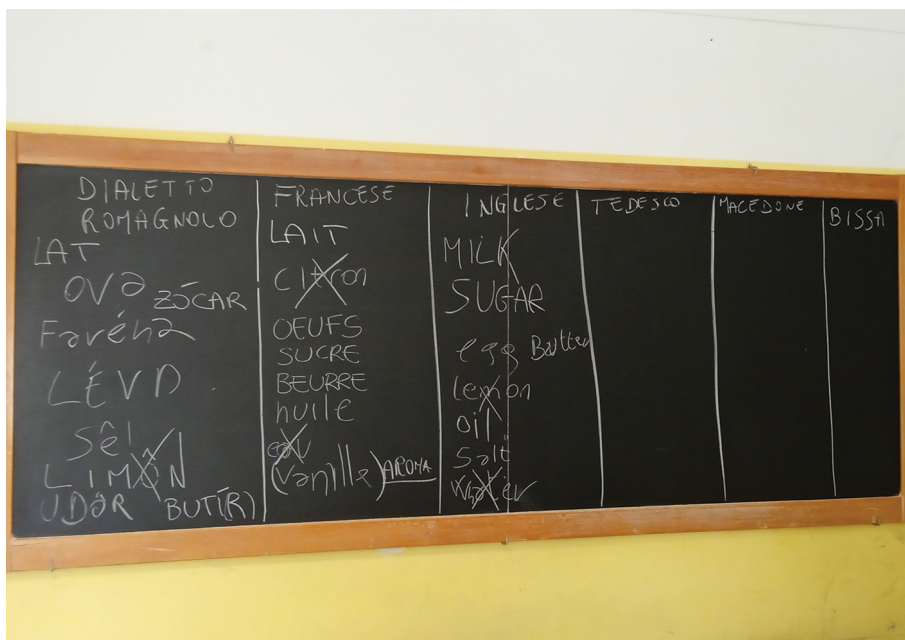 DIALETTO
ROMAGNOLO
LAT
OVA ZÓCAR
Faréna
LÉVD
Sêl
LIMÔN
UDÔR BUTÍ(R)
FRANCESE
LAIT
OEUFS
SUCRE
BEURRE
huile
(vanille) AROMA
INGLESE
MILK
SUGAR
egg Butter
lemon
oil
Salt
water
TEDESCO
MACEDONE
BISSA